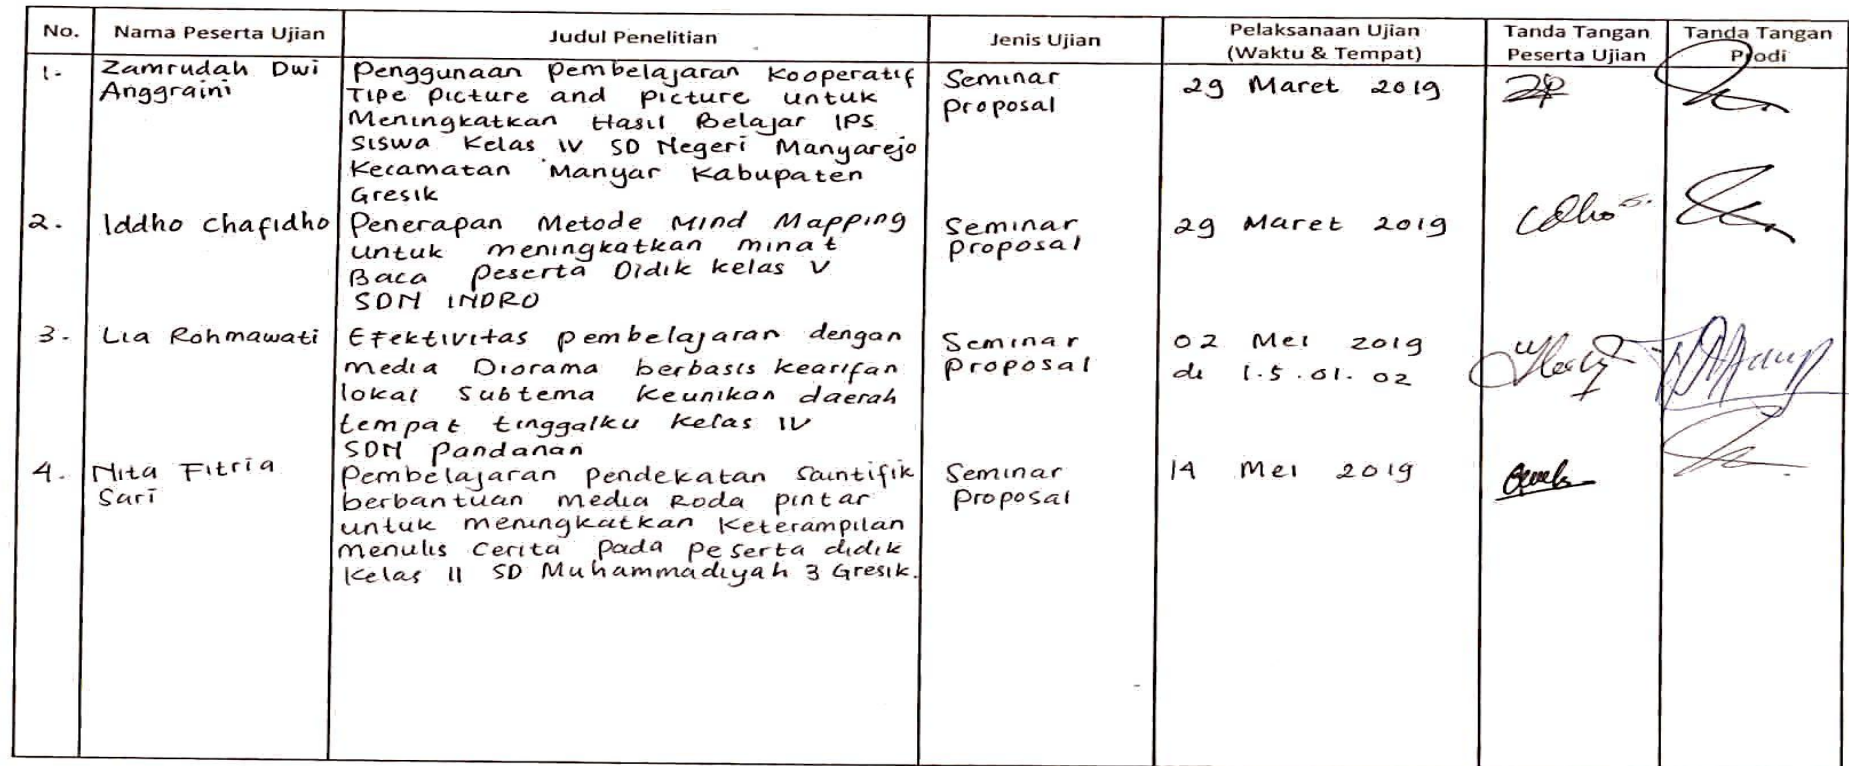 No. Nama Peserta Ujian Judul Penelitian Jenis Ujian Pelaksanaan Ujian (Waktu & Tempat) Tanda Tangan Peserta Ujian Tanda Tangan Prodi
1. Zamrudah Dwi Anggraini
Penggunaan Pembelajaran Kooperatif
Tipe Picture and Picture untuk
Meningkatkan Hasil Belajar IPS
Siswa Kelas IV SD Negeri Manyarejo
Kecamatan Manyar Kabupaten
Gresik
Seminar
Proposal
29 Maret 2019
2. Iddho Chafidho
Penerapan Metode Mind Mapping
untuk meningkatkan minat
Baca Peserta Didik kelas V
SDN INDRO
Seminar
Proposal
29 Maret 2019
3. Lia Rohmawati
Efektivitas pembelajaran dengan
media Diorama berbasis kearifan
lokal Subtema keunikan daerah
tempat tinggalku Kelas IV
SDN Pandanan
Seminar
Proposal
02 Mei 2019
di 1.5.01.02
4. Nita Fitria
Sari
Pembelajaran Pendekatan Saintifik
berbantuan media Roda pintar
untuk meningkatkan Keterampilan
menulis Cerita pada peserta didik
Kelas II SD Muhammadiyah 3 Gresik.
Seminar
Proposal
14 Mei 2019